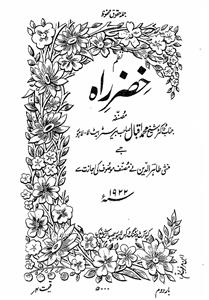 جملہ حقوق محفوظ
نظم
خضرِ راہ
مصنفہ
جناب ڈاکٹر شیخ محمد اقبال صاحب بیرسٹر ایٹ لا۔ لاہور
جسے
منشی طاہر الدین نے مصنف موصوف کی اجازت سے
۱۹۲۲
بار دوم
۵۰۰۰
قیمت ۴